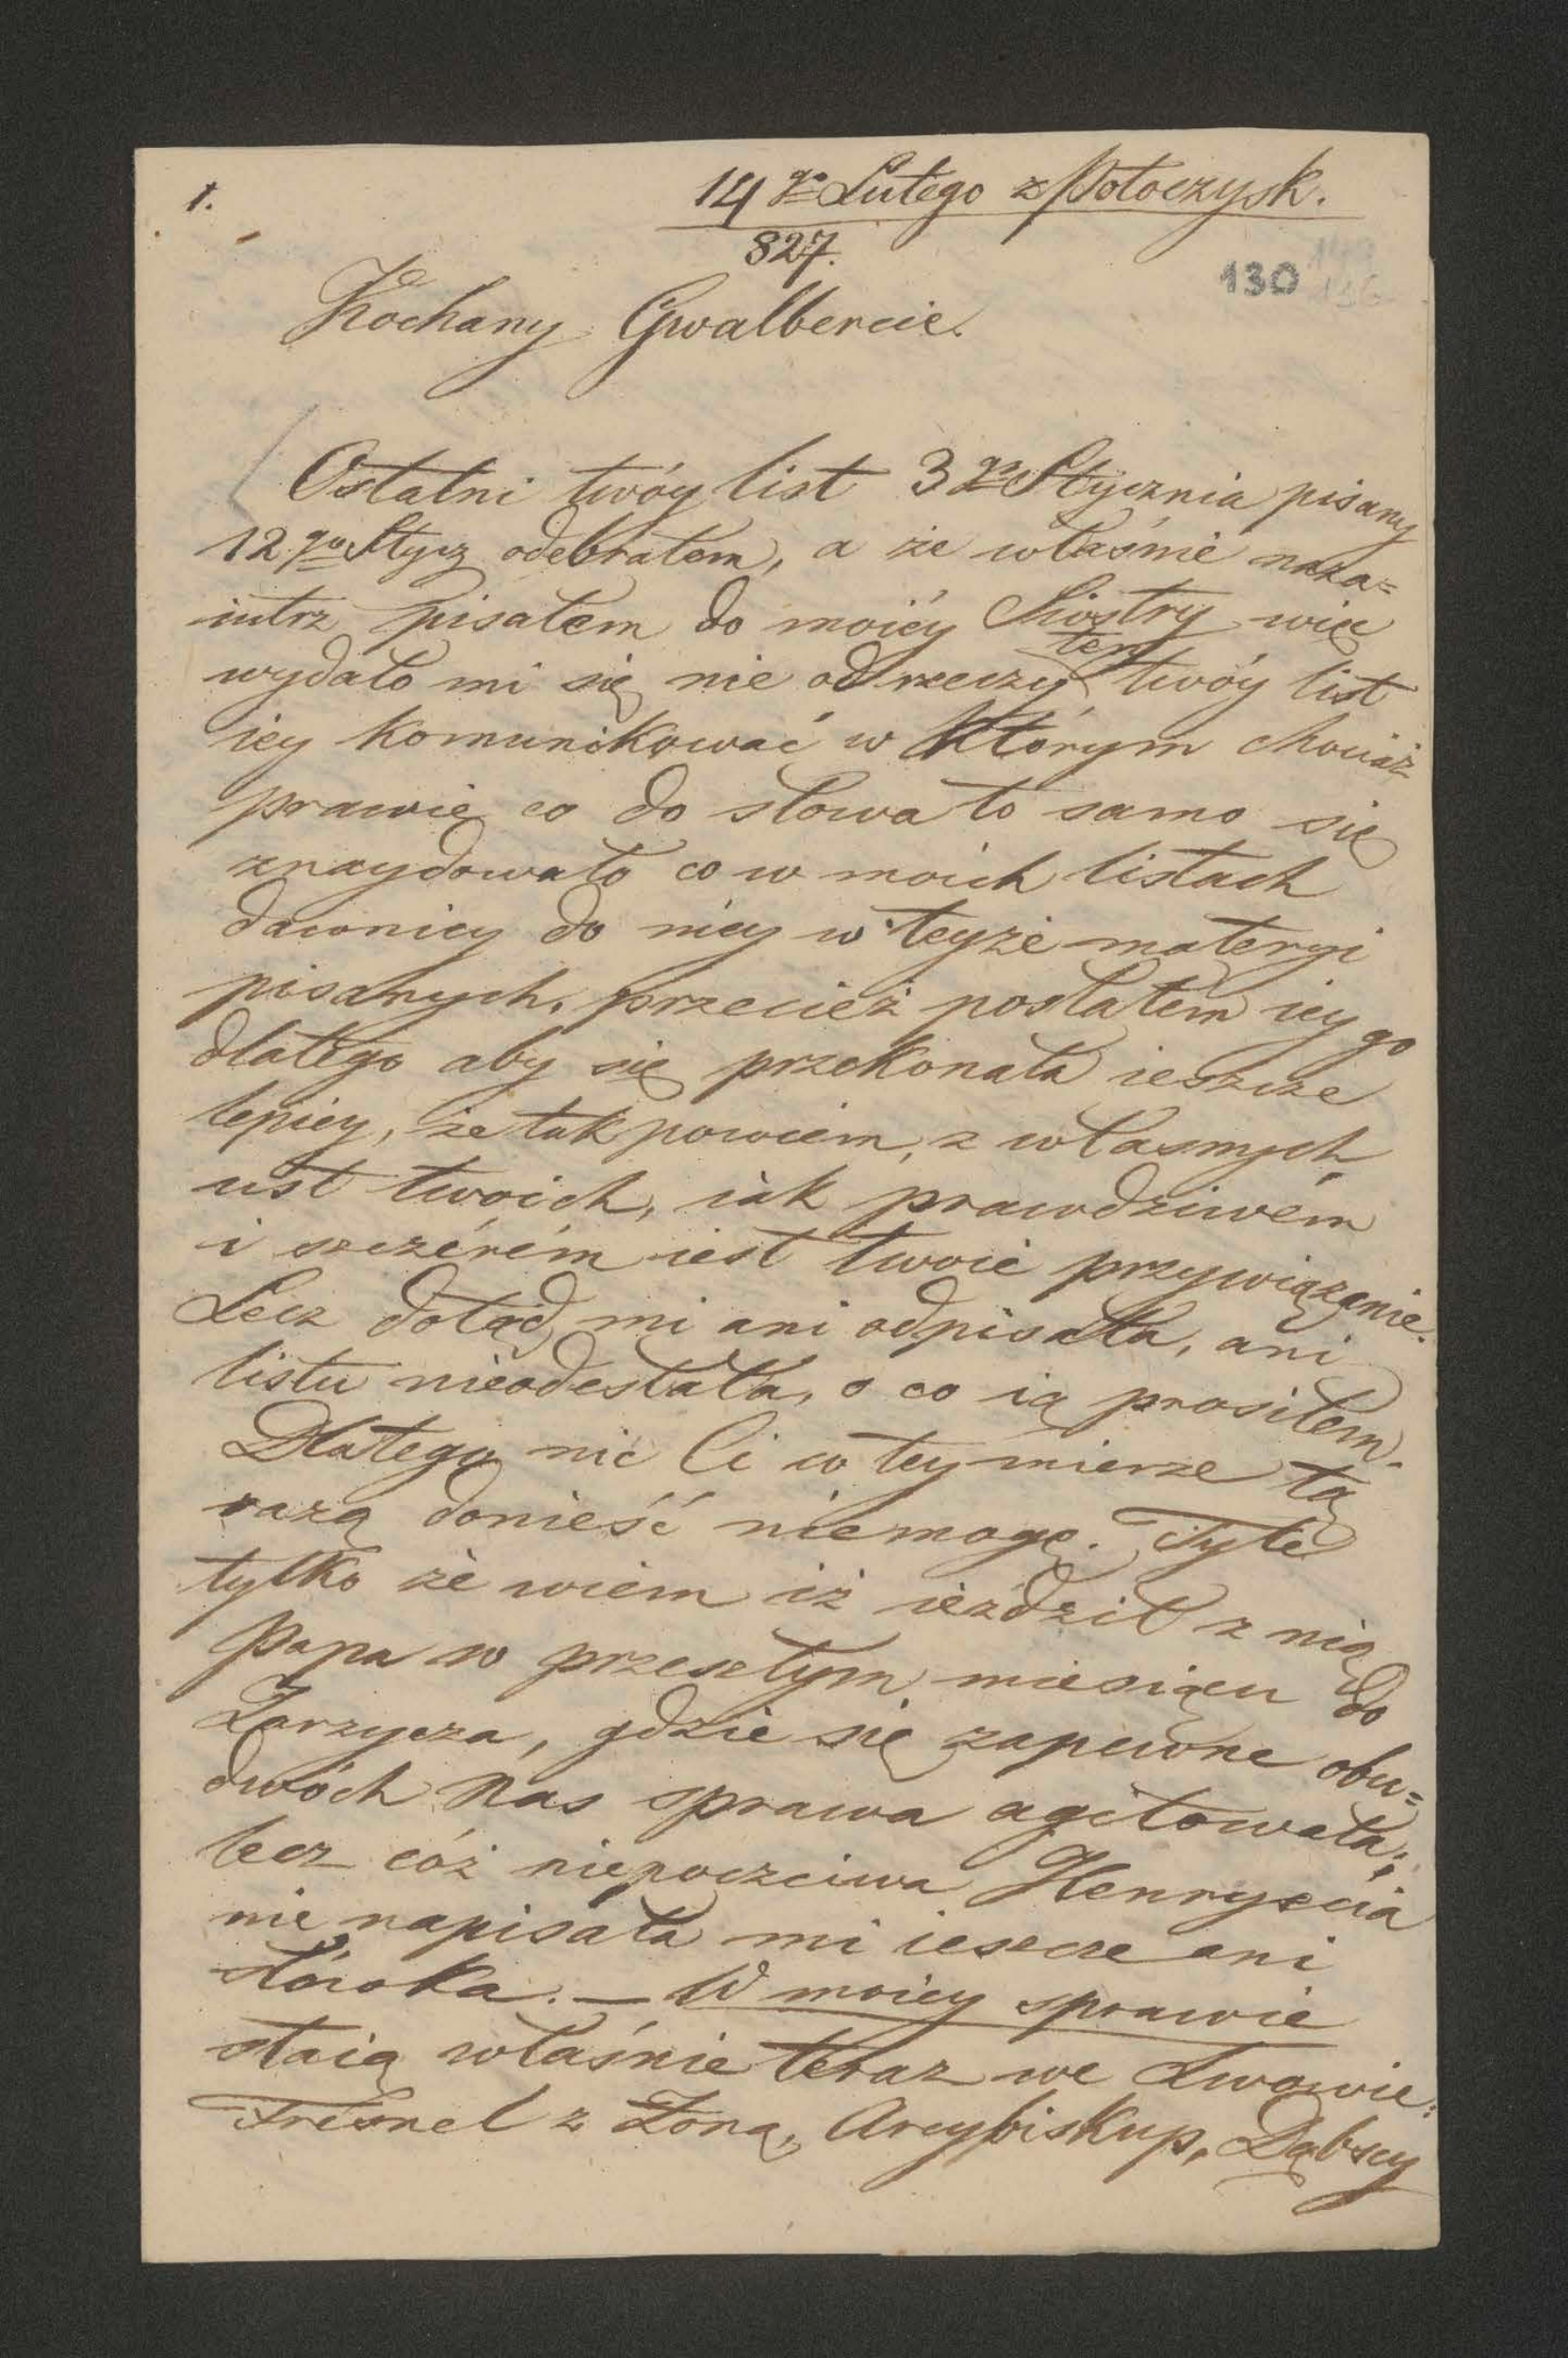 1.
14 go Lutego z Potoczysk.
827.
130
Kochany Gwalbercie.
Ostatni twóy list 3 go Stycznia pisany
12. go Stycz odebrałem, a że właśnie naza=
iutrz pisałem do moiéy Siostry więc
wydało mi się nie od rzeczy ten twóy list
iey komunikować w którym chociaż
prawie co do słowa to samo się
znaydowało co w moich listach
dawniey do niéy w teyże materyi
pisanych, przecież posłałem iey go
dlatego aby się przekonała ieszcze
lepiey, że tak powiem, z własnych
ust twoich, iak prawdziwém
i szczérém iest twoie przywiązanie.
Lecz dotąd mi ani odpisała, ani
listu nieodesłała, o co ią prosiłem.
Dlatego nic Ci w tey mierze tą
razą donieść niemogę. Tyle
tylko że wiem iż ieździł z nią
Papa w przeszłym miesiącu do
Zarzycza, gdzie się zapewne obu=
dwóch nas sprawa agitowała;
lecz cóż niepoczciwa Henrysia
nie napisała mi ieszcze ani
słówka. — W moiey sprawie
staią właśnie teraz we Lwowie:
Fresnel z Żoną, Arcybiskup, Dąbscy